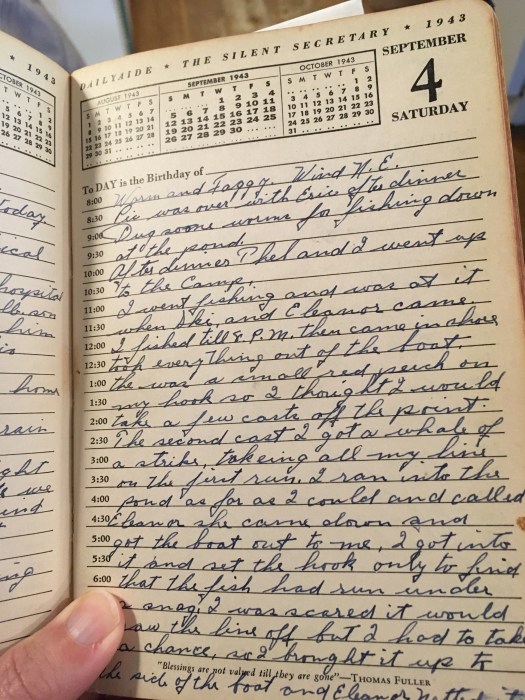 * 1943
DAILYAIDE * THE SILENT SECRETARY * 1943
SEPTEMBER
4
SATURDAY
AUGUST 1943
S M T W T F S
1 2 3 4 5 6 7
8 9 10 11 12 13 14
15 16 17 18 19 20 21
22 23 24 25 26 27 28
29 30 31
SEPTEMBER 1943
S M T W T F S
1 2 3 4
5 6 7 8 9 10 11
12 13 14 15 16 17 18
19 20 21 22 23 24 25
26 27 28 29 30
OCTOBER 1943
S M T W T F S
1 2
3 4 5 6 7 8 9
10 11 12 13 14 15 16
17 18 19 20 21 22 23
24 25 26 27 28 29 30
31
To DAY is the Birthday of
8:00 Warm and Foggy Wind N.E.
8:30 was over with Eric after dinner
9:00 Dug some worms for fishing down
9:30 at the pond.
10:00 After dinner Phel and I went up
10:30 to the Camp.
11:00 I went fishing and was at it
11:30 when Ski and Eleanor came.
12:00 I fished till 8 P.M. then came in shore
12:30 took everything out of the boat
1:00 the was a small red perch on
1:30 my hook so I thought I would
2:00 take a few casts off the point.
2:30 The second cast I got a whale of
3:00 a strike, takeing all my line
3:30 on the first run. I ran into the
4:00 pond as far as I could and called
4:30 Eleanor she came down and
5:00 got the boat out to me, I got into
5:30 it and set the hook only to find
6:00 that the fish had run under
a snag, I was scared it would
saw the line off but I had to take
a chance, so I brought it up to
"Blessings are not valued till they are gone"—THOMAS FULLER
the side of the boat and Eleanor